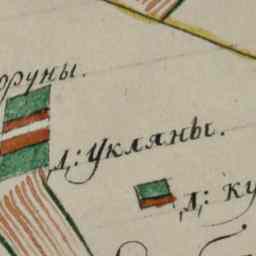 оруны.
д: Укляны.
д: ку